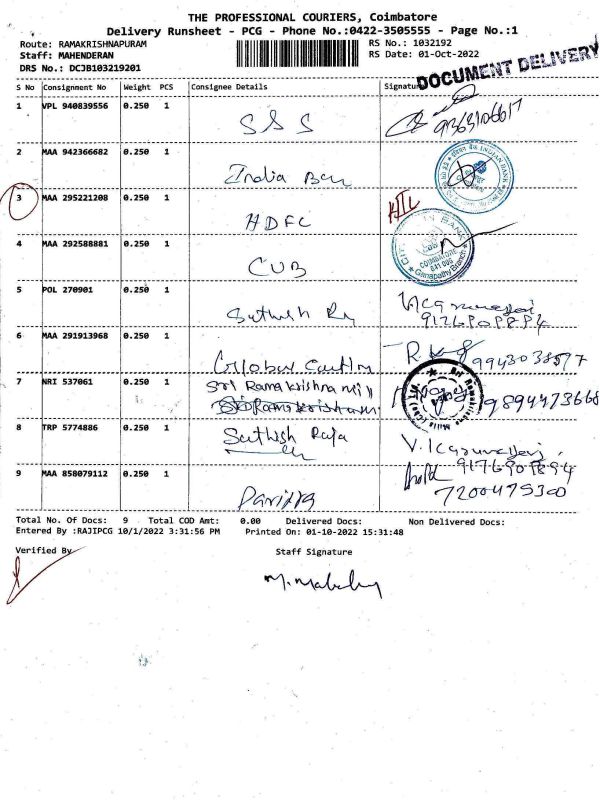 THE PROFESSIONAL COURIERS, Coimbatore
Delivery Runsheet - PCG - Phone No.:0422-3505555 - Page No.:1
Route: RAMAKRISHNAPURAM RS No.: 1032192
Staff: MAHENDERAN RS Date: 01-Oct-2022
DRS No.: DCJB103219201
DOCUMENT DELIVERY
S No Consignment No Weight PCS Consignee Details Signature
1 VPL 940839556 0.250 1 S S S
2 MAA 942366682 0.250 1 India Ban
INDIAN BANK
3 MAA 295221208 0.250 1 HDFC
4 MAA 292588881 0.250 1 CUB
COIMBATORE
641 006
Ganapathy Branch
5 POL 270901 0.250 1 Suthish
9176909894
6 MAA 291913968 0.250 1 Global
7 NRI 537061 0.250 1 Sri Rama Krishna Mill
9894473668
8 TRP 5774886 0.250 1 Suthish Raja
9176909894
9 MAA 858079112 0.250 1
7200475300
Total No. Of Docs: 9 Total COD Amt: 0.00 Delivered Docs: Non Delivered Docs:
Entered By :RAJIPCG 10/1/2022 3:31:56 PM Printed On: 01-10-2022 15:31:48
Verified By Staff Signature